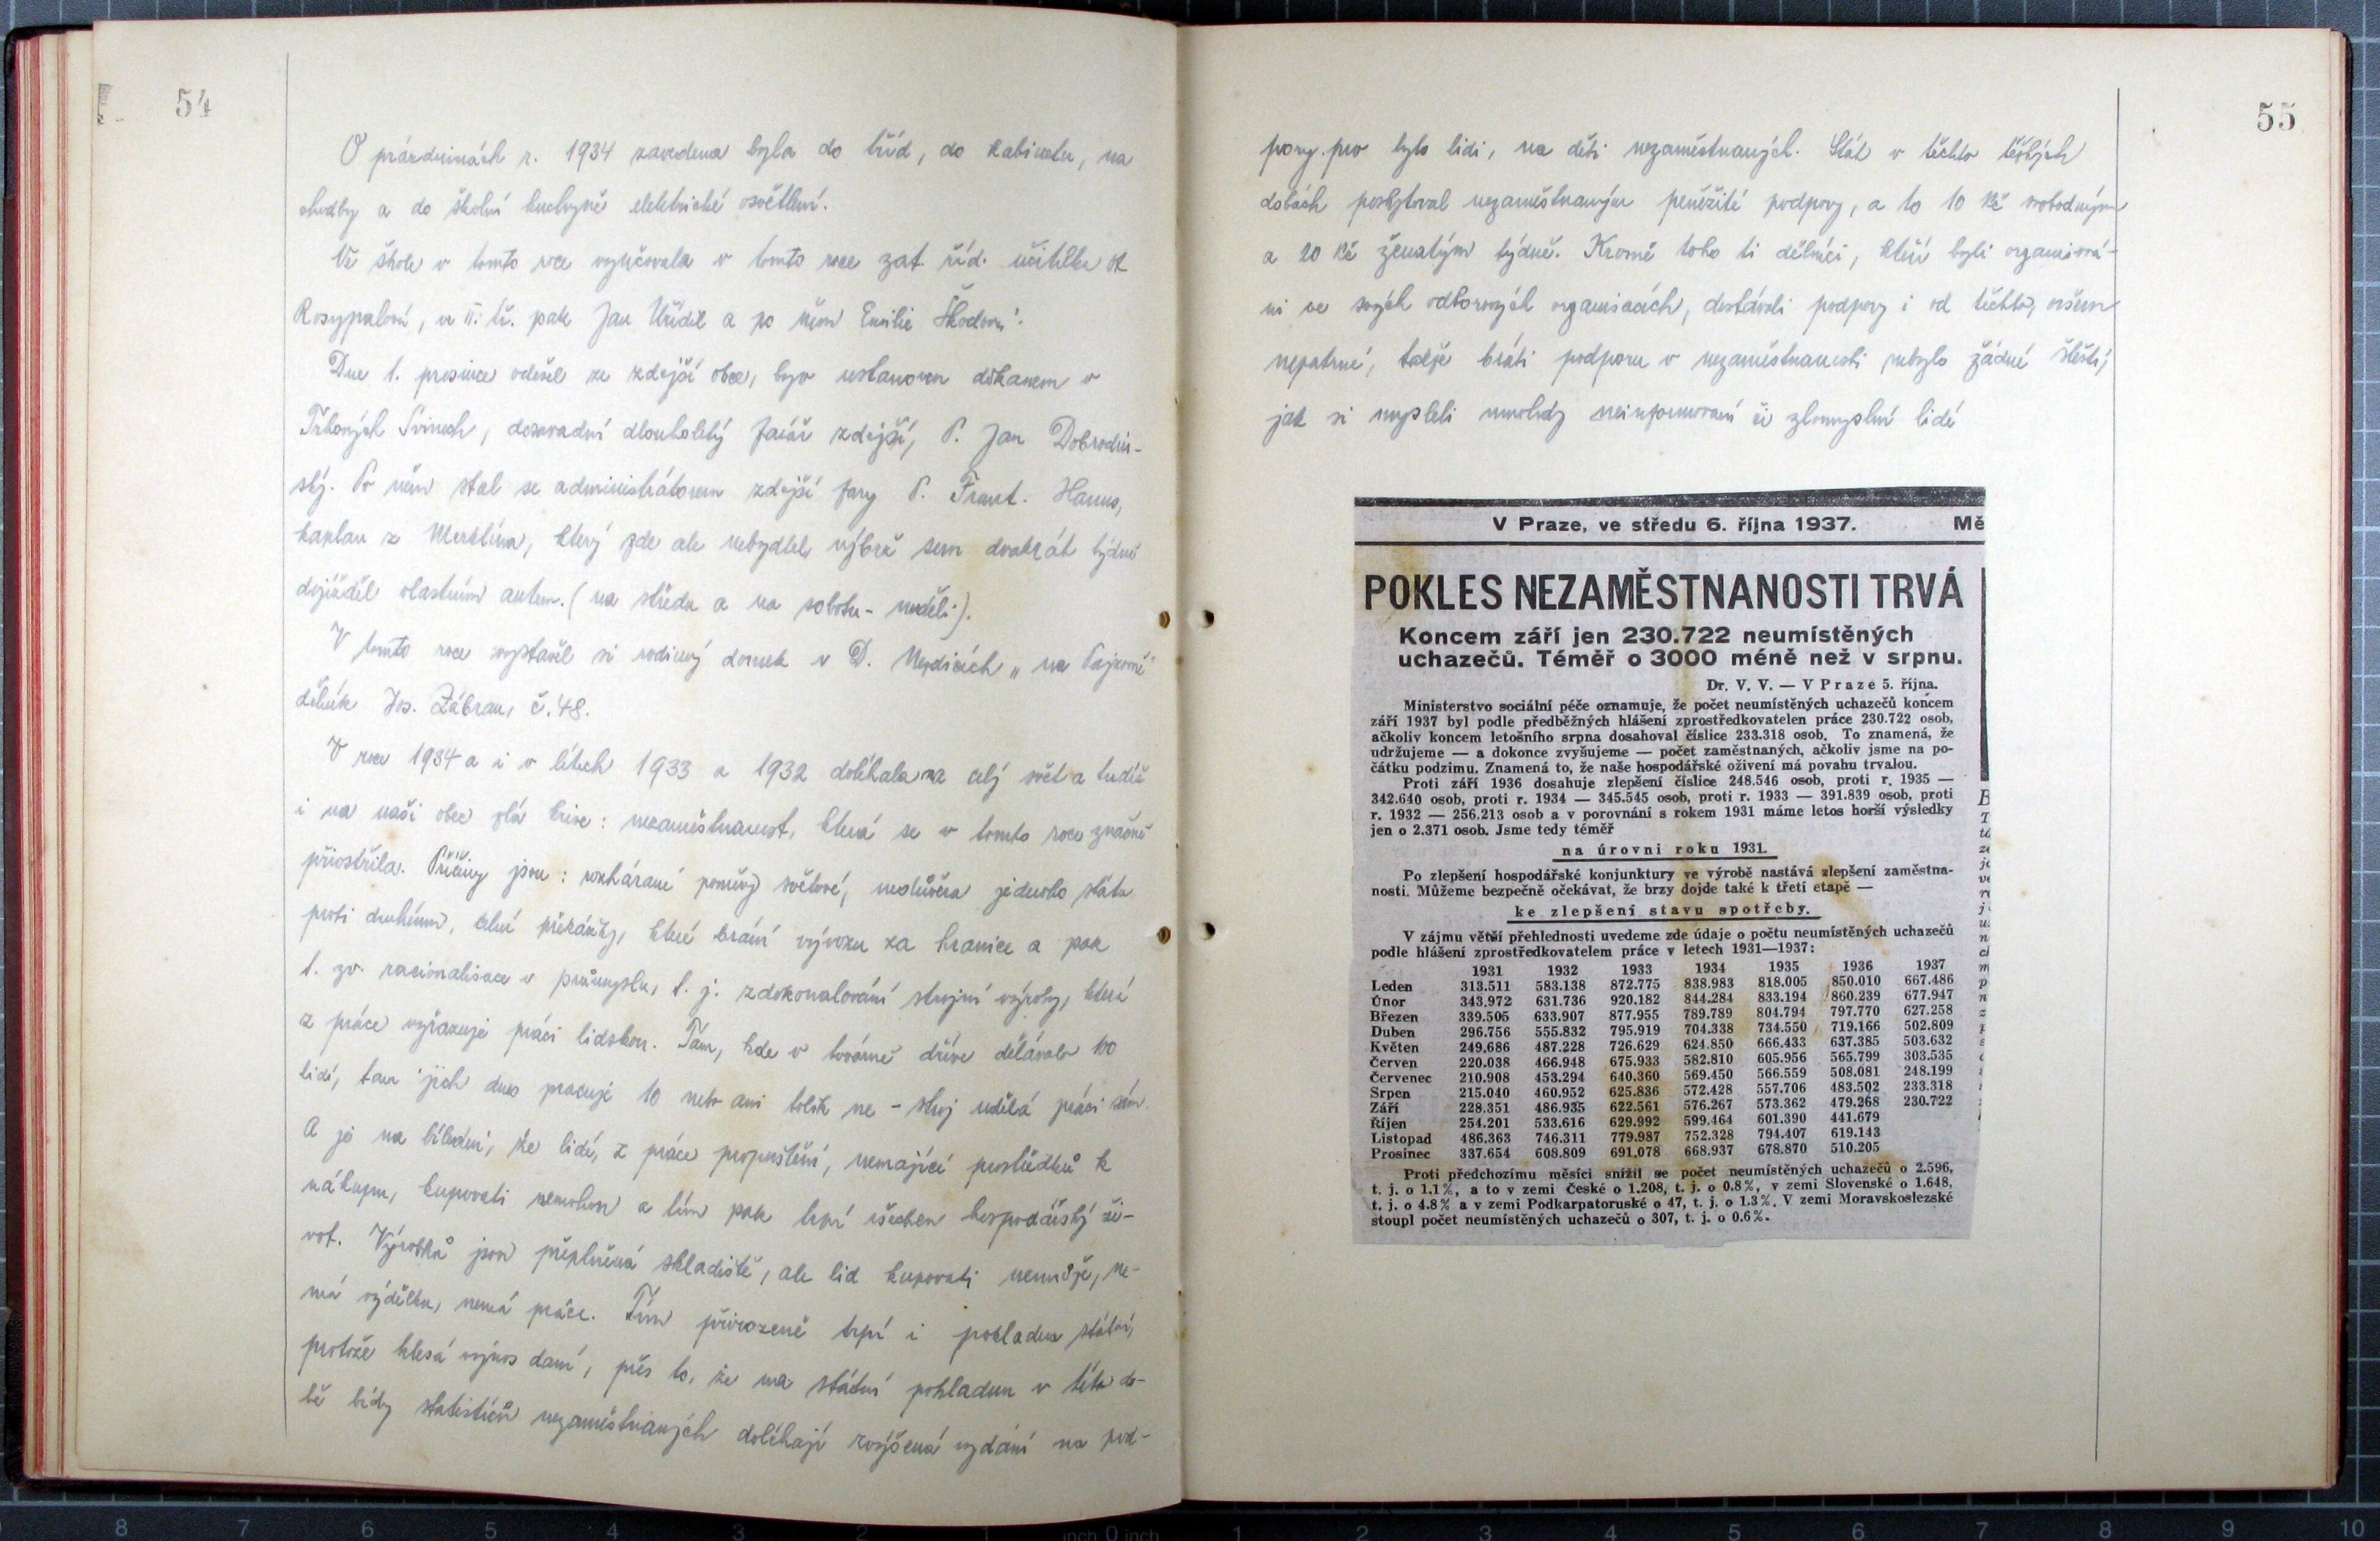 54
O prázdninách r. 1934 zavedena byla do tříd, do kabinetu, na
chodby a do školní kuchyně elektrické osvětlení.
Ve škole v tomto roce vyučovala v tomto roce zat. říd. učitelka
Rosypalová, ve II. tř. pak Jan Uřídil a po něm Emilie Škodová.
Dne 1. prosince odešel ze zdejší obce, byv ustanoven děkanem v
Trhových Svinech, dosavadní dlouholetý farář zdejší, P. Jan Dobrodin-
ský. Po něm stal se administrátorem zdejší fary P. Frant. Hanus,
kaplan z Merklína, který zde ale nebydlel, nýbrž sem dvakrát týdně
dojížděl vlastním autem. (na středu a na sobotu - neděli).
V tomto roce vystavěl si rodinný domek v D. Nezdicích „na Pajzovně"
dělník Jos. Zábran, č. 48.
V roce 1934 a i v létech 1933 a 1932 doléhala na celý svět a tudíž
i na naši obec zlá krise: nezaměstnanost, která se v tomto roce značně
přiostřila. Příčiny jsou: rozhárané poměry světové, nedůvěra jednoho státu
proti druhému, celní překážky, které brání vývozu za hranice a pak
t. zv. racionalisace v průmyslu, t. j. zdokonalování strojní výroby, která
z práce vyřazuje práci lidskou. Tam, kde v továrně dříve dělávalo 100
lidí, tam jich dnes pracuje 10 nebo ani tolik ne - stroj udělá práci sám.
A je na bíledni, že lidé, z práce propuštění, nemající prostředků k
nákupu, kupovati nemohou a tím pak trpí všechen hospodářský ži-
vot. Výrobků jsou přeplněná skladiště, ale lid kupovati nemůže, ne-
má výdělku, nemá práce. Tím přirozeně trpí i pokladna státní,
protože klesá výnos daní, přes to, že na státní pokladnu v této do-
bě bídy statisíců nezaměstnaných doléhají zvýšená vydání na pod-
55
pory pro tyto lidi, na děti nezaměstnaných. Stát v těchto těžkých
dobách poskytoval nezaměstnaným peněžité podpory, a to 10 Kč svobodným
a 20 Kč ženatým týdně. Kromě toho ti dělníci, kteří byli organisová-
ni ve svých odborových organisacích, dostávali podpory i od těchto, ovšem
nepatrné, takže bráti podporu v nezaměstnanosti nebylo žádné štěstí,
jak si mysleli mnohdy neinformovaní či zlomyslní lidé
V Praze, ve středu 6. října 1937. Mě
POKLES NEZAMĚSTNANOSTI TRVÁ
Koncem září jen 230.722 neumístěných
uchazečů. Téměř o 3000 méně než v srpnu.
Dr. V. V. — V Praze 5. října.
Ministerstvo sociální péče oznamuje, že počet neumístěných uchazečů koncem
září 1937 byl podle předběžných hlášení zprostředkovatelen práce 230.722 osob,
ačkoliv koncem letošního srpna dosahoval číslice 233.318 osob. To znamená, že
udržujeme — a dokonce zvyšujeme — počet zaměstnaných, ačkoliv jsme na po-
čátku podzimu. Znamená to, že naše hospodářské oživení má povahu trvalou.
Proti září 1936 dosahuje zlepšení číslice 248.546 osob, proti r. 1935 —
342.640 osob, proti r. 1934 — 345.545 osob, proti r. 1933 — 391.839 osob, proti
r. 1932 — 256.213 osob a v porovnání s rokem 1931 máme letos horší výsledky
jen o 2.371 osob. Jsme tedy téměř
na úrovni roku 1931.
Po zlepšení hospodářské konjunktury ve výrobě nastává zlepšení zaměstna-
nosti. Můžeme bezpečně očekávat, že brzy dojde také k třetí etapě —
ke zlepšení stavu spotřeby.
V zájmu větší přehlednosti uvedeme zde údaje o počtu neumístěných uchazečů
podle hlášení zprostředkovatelem práce v letech 1931—1937:
1931 1932 1933 1934 1935 1936 1937
Leden 313.511 583.138 872.775 838.983 818.005 850.010 667.486
Únor 343.972 631.736 920.182 844.284 833.194 860.239 677.947
Březen 339.505 633.907 877.955 789.789 804.794 797.770 627.258
Duben 296.756 555.832 795.919 704.338 734.550 719.166 502.809
Květen 249.686 487.228 726.629 624.850 666.433 637.385 503.632
Červen 220.038 466.948 675.933 582.810 605.956 565.799 303.535
Červenec 210.908 453.294 640.360 569.450 566.559 508.081 248.199
Srpen 215.040 460.952 625.836 572.428 557.706 483.502 233.318
Září 228.351 486.935 622.561 576.267 573.362 479.268 230.722
Říjen 254.201 533.616 629.992 599.464 601.390 441.679
Listopad 486.363 746.311 779.987 752.328 794.407 619.143
Prosinec 337.654 608.809 691.078 668.937 678.870 510.205
Proti předchozímu měsíci snížil se počet neumístěných uchazečů o 2.596,
t. j. o 1.1%, a to v zemi České o 1.208, t. j. o 0.8%, v zemi Slovenské o 1.648,
t. j. o 4.8% a v zemi Podkarpatoruské o 47, t. j. o 1.3%. V zemi Moravskoslezské
stoupl počet neumístěných uchazečů o 307, t. j. o 0.6%.
8 7 6 5 4 3 2 1 inch 0 inch 1 2 3 4 5 6 7 8 9 10